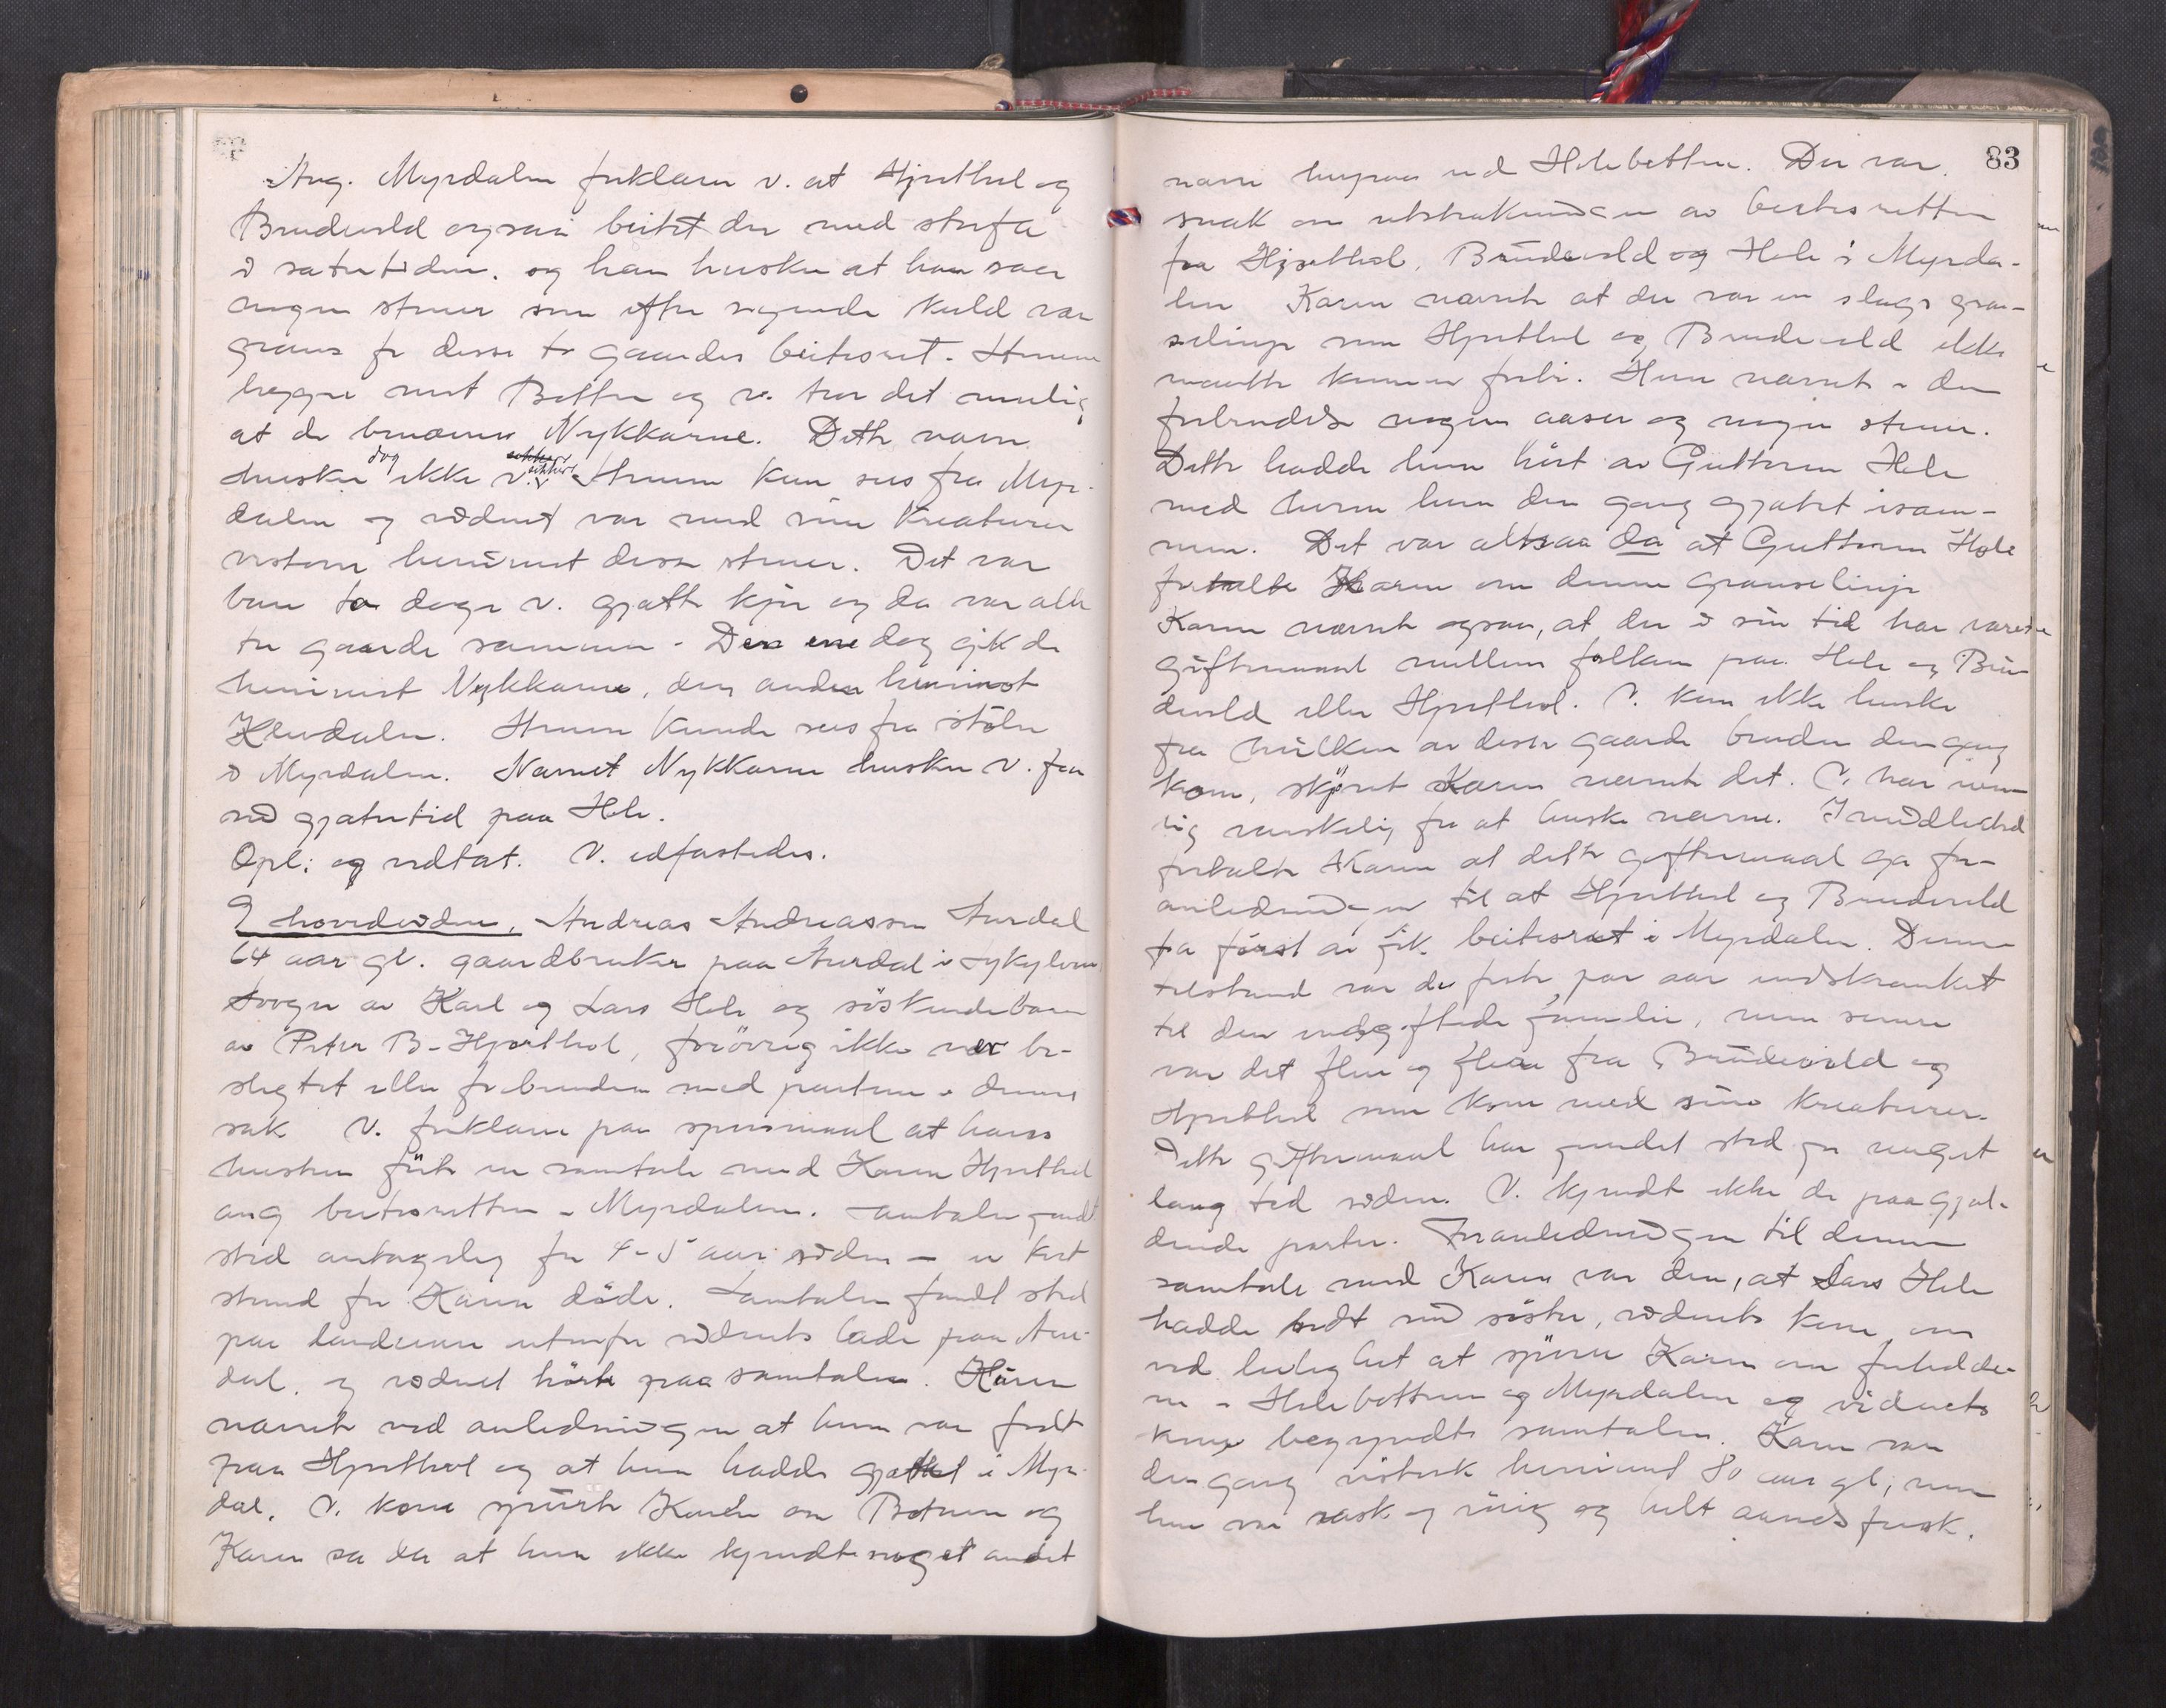 Ang. Myrdalen forklarer v. at Hjorthol og
Brudevold ogsaa beitet der med storfæ
i sætertiden. og han husker at han saa
nogen stener som efter sigende kuld var
grænse for disse to gaardes beitesret. Stenene
ligger mot Botten og v. tror det mulig
at de benævnes Nykkarne. Dette navn
husker dog ikke v. sikkert. Stenene kan sees fra Myr-
dalen og vidnet var med sine kreaturer
vistnok henimot disse stener. Det var
bare to dage v. gjætte kjør og da var alle
tre gaarde sammen. Den ene dag gik de
henimot Nykkarne, den anden henimot
Klovdalen. Stenene kunde sees fra stölen
i Myrdalen. Navnet Nykkarne husker v. fra
sin gjætertid paa Hole.
Opl: og vedtat. V. edfæstedes.
9 hovedvidne, Andreas Andreassen Aurdal
64 aar gl. gaardbruker paa Aurdal i Sykylven
svoger av Karl og Lars Hole og söskendebarn
av Peter B. Hjorthol, forövrig ikke nær be-
slegtet eller forbunden med partene i denne
sak V. forklarer paa spörsmaal at hans
hustru förte en samtale med Karen Hjorthol
ang beitesretten i Myrdalen. Samtalen fandt
sted antagelig for 4-5 aar siden - en kort
stund för Karen döde. Samtalen fandt sted
paa landeveien utenfor vidnets lade paa Aur-
dal. og vidnet hörte paa samtalen. Karen
nævnte ved anledningen at hun var född
paa Hjorthol og at hun hadde gjætet i Myr-
dal. V. kone spurte Karen om Botnen og
Karen sa da at hun ikke kjendte noget andet
83
navn herpaa end Holebotten. Der var
snak om utstrækningen av beitesretten
fra Hjorthol, Brudevold og Hole i Myrda-
len Karen nævnte at der var en slags græn-
selinje som Hjorthol og Brudevold ikke
maatte komme forbi. Hun nævnte i den
forbindelse nogen aaser og nogen stener.
Dette hadde hun hört av Guttorm Hole
med hvem hun den gang gjætet isam-
men. Det var altsaa da at Guttorm Hole
fortalte Karen om denne grænselinje
Karen nævnte ogsaa, at der i sin tid har været
giftermaal mellem folkene paa Hole og Bru-
devold eller Hjorthol. V. kan ikke huske
fra hvilken av disse gaarde bruden dengang
kom, skjönt Karen nævnte det. V. har nem-
lig vanskelig for at huske navne. Imidlertid
fortalte Karen at dette giftermaal ga for-
anledningen til at Hjorthol og Brudevold
fra först av fik beitesret i Myrdalen. Denne
tilstand var de förste par aar indskrænket
til den indgiftede familie, men senere
var det flere og flere fra Brudevold og
Hjorthol som kom med sine kreaturer.
Dette giftermaal har fundet sted for meget
lang tid siden. V. kjendte ikke de paagjæl-
dende parter. Foranledningen til denne
samtale med Karen var den, at Lars Hole
hadde bedt sin söster, vidnets kone, om
ved leilighet at spörre Karen om forholde-
ne i Holebottnen og Myrdalen og vidnets
kone begyndte samtalen. Karen var
dengang vistnok henimot 80 aar gl, men
hun var rask og rörig og helt aandsfrisk.